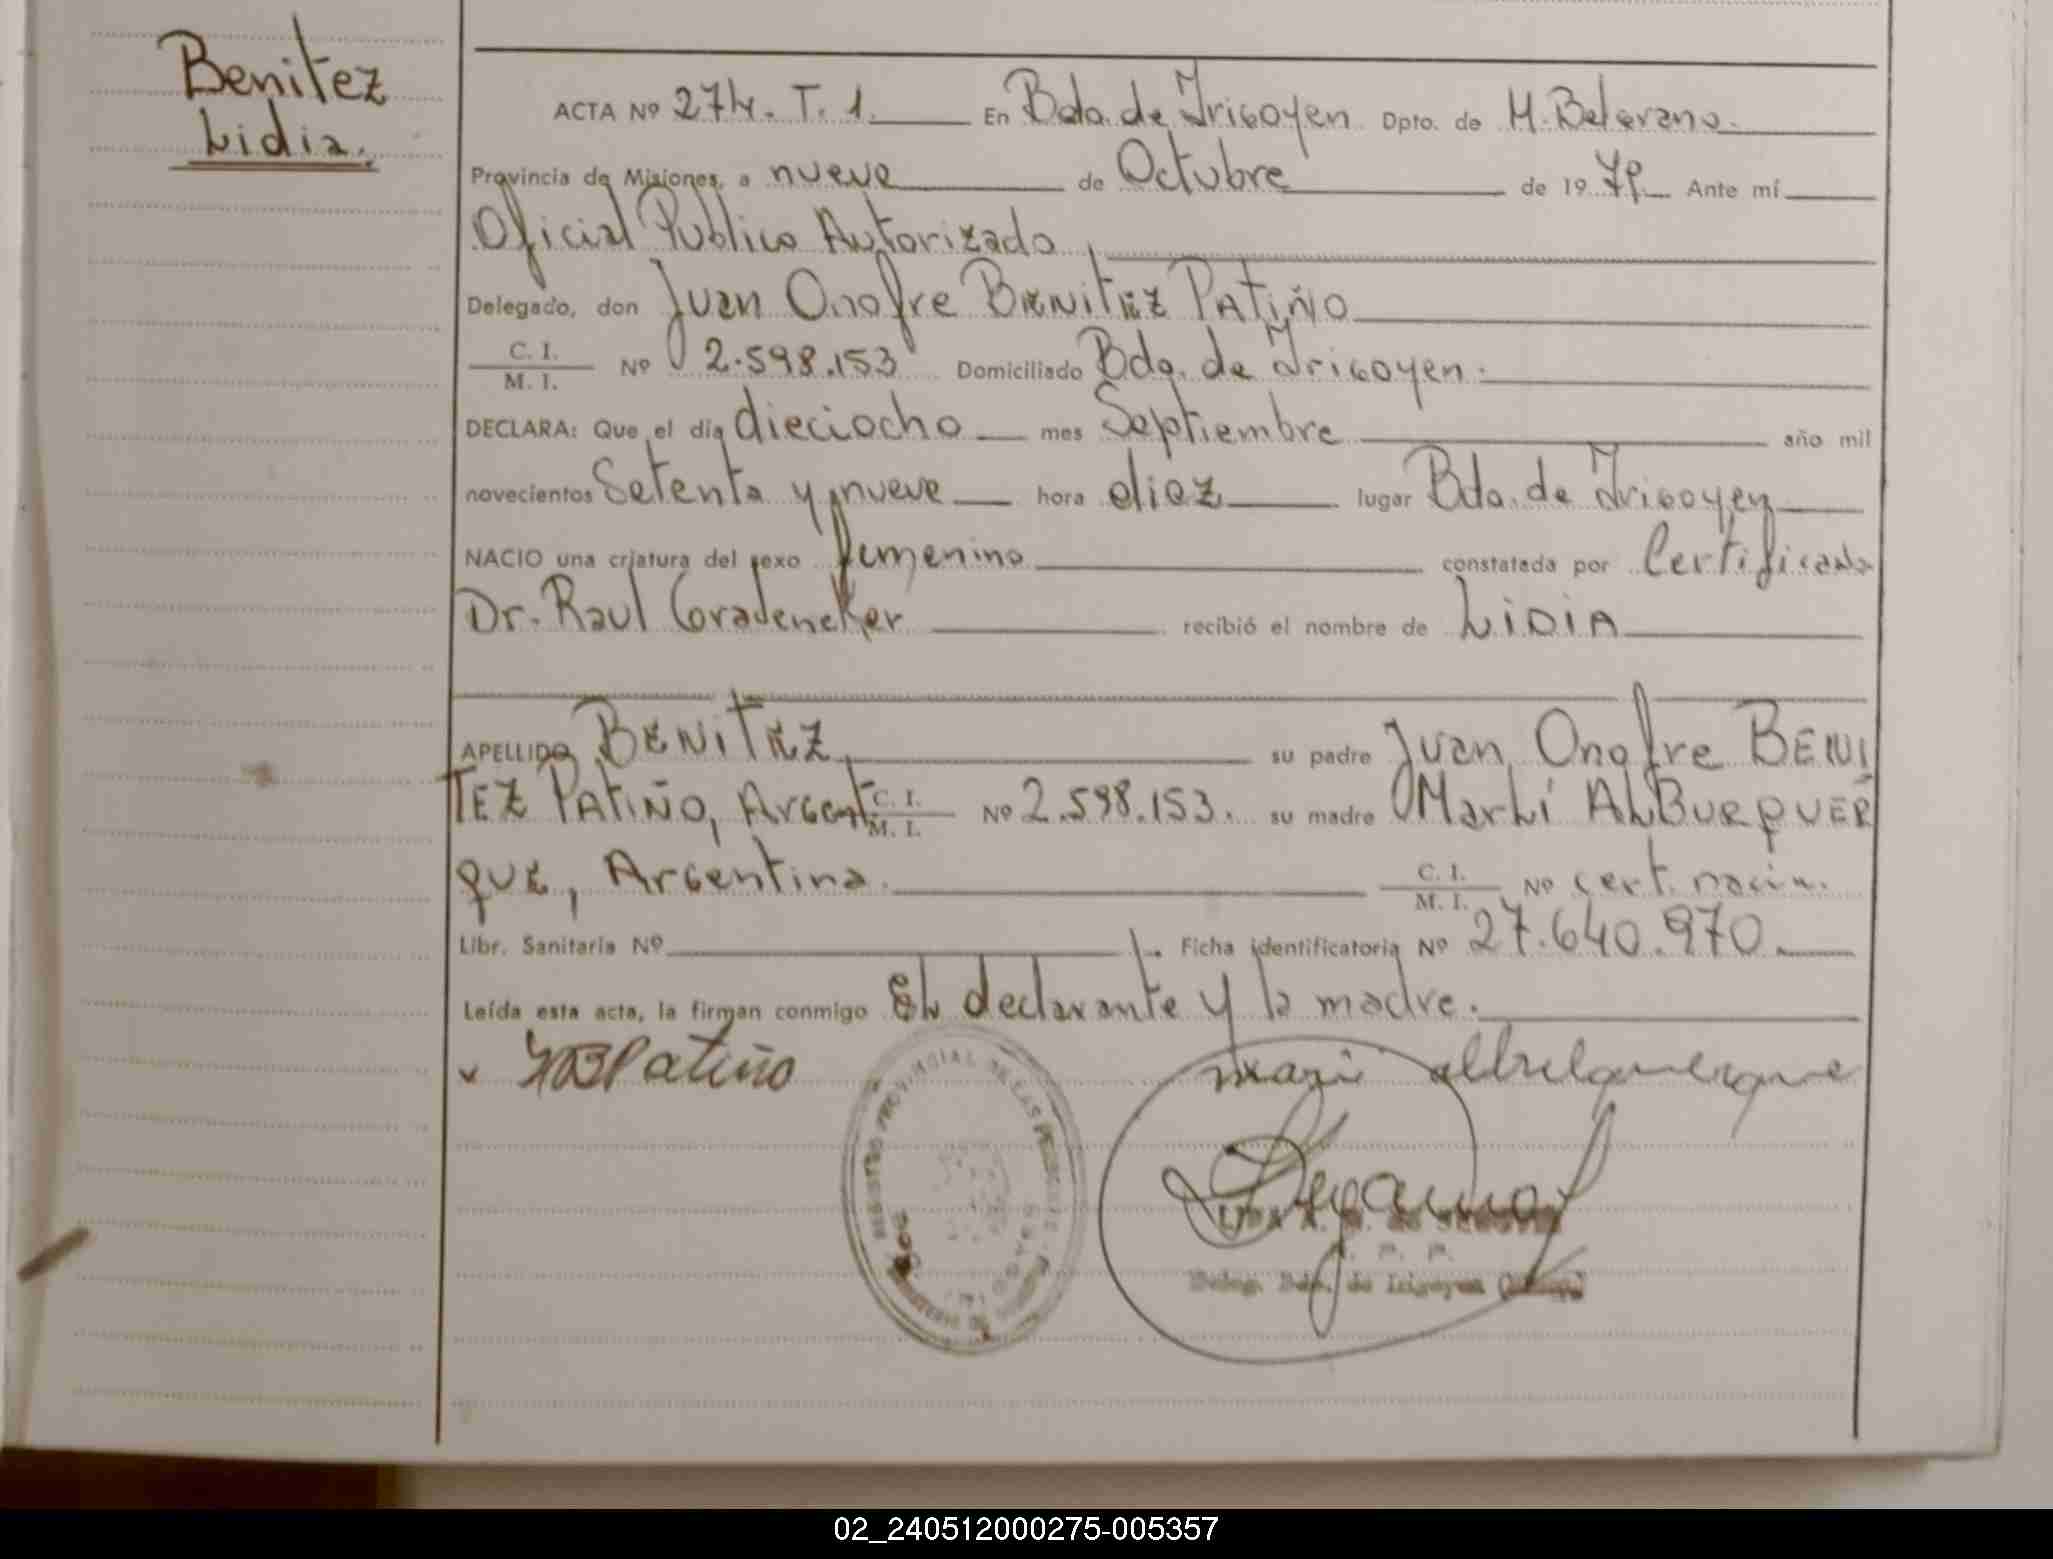 Benitez
Lidia.
ACTA Nº 274. T. 1. En Bdo. de Irigoyen Dpto. de M. Belgrano.
Provincia de Misiones, a nueve de Octubre de 1979 Ante mí
Oficial Publico Autorizado
Delegado, don Juan Onofre BENITEZ PATIÑO
C. I.
M. I. Nº 2.598.153 Domiciliado Bdo. de Irigoyen.
DECLARA: Que el día dieciocho mes Septiembre año mil
novecientos Setenta y nueve hora diez lugar Bdo. de Irigoyen
NACIO una criatura del sexo femenino constatada por Certificado
Dr. Raul recibió el nombre de LIDIA
APELLIDO BENITEZ su padre Juan Onofre BENI
TEZ PATIÑO, Argent. C. I.
M. I. Nº 2.598.153. su madre Marlí ALBURQUER
QUE, Argentina. C. I.
M. I. Nº cert. nacim.
Libr. Sanitaria Nº Ficha identificatoria Nº 27.640.970.
Leída esta acta, la firman conmigo El declarante y la madre.
JOBPatiño
albuquerque
REGISTRO PROVINCIAL DE LAS PERSONAS
Deleg. Bdo. de Irigoyen
02_240512000275-005357